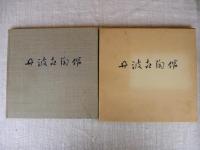 丹波古陶館
丹波古陶館